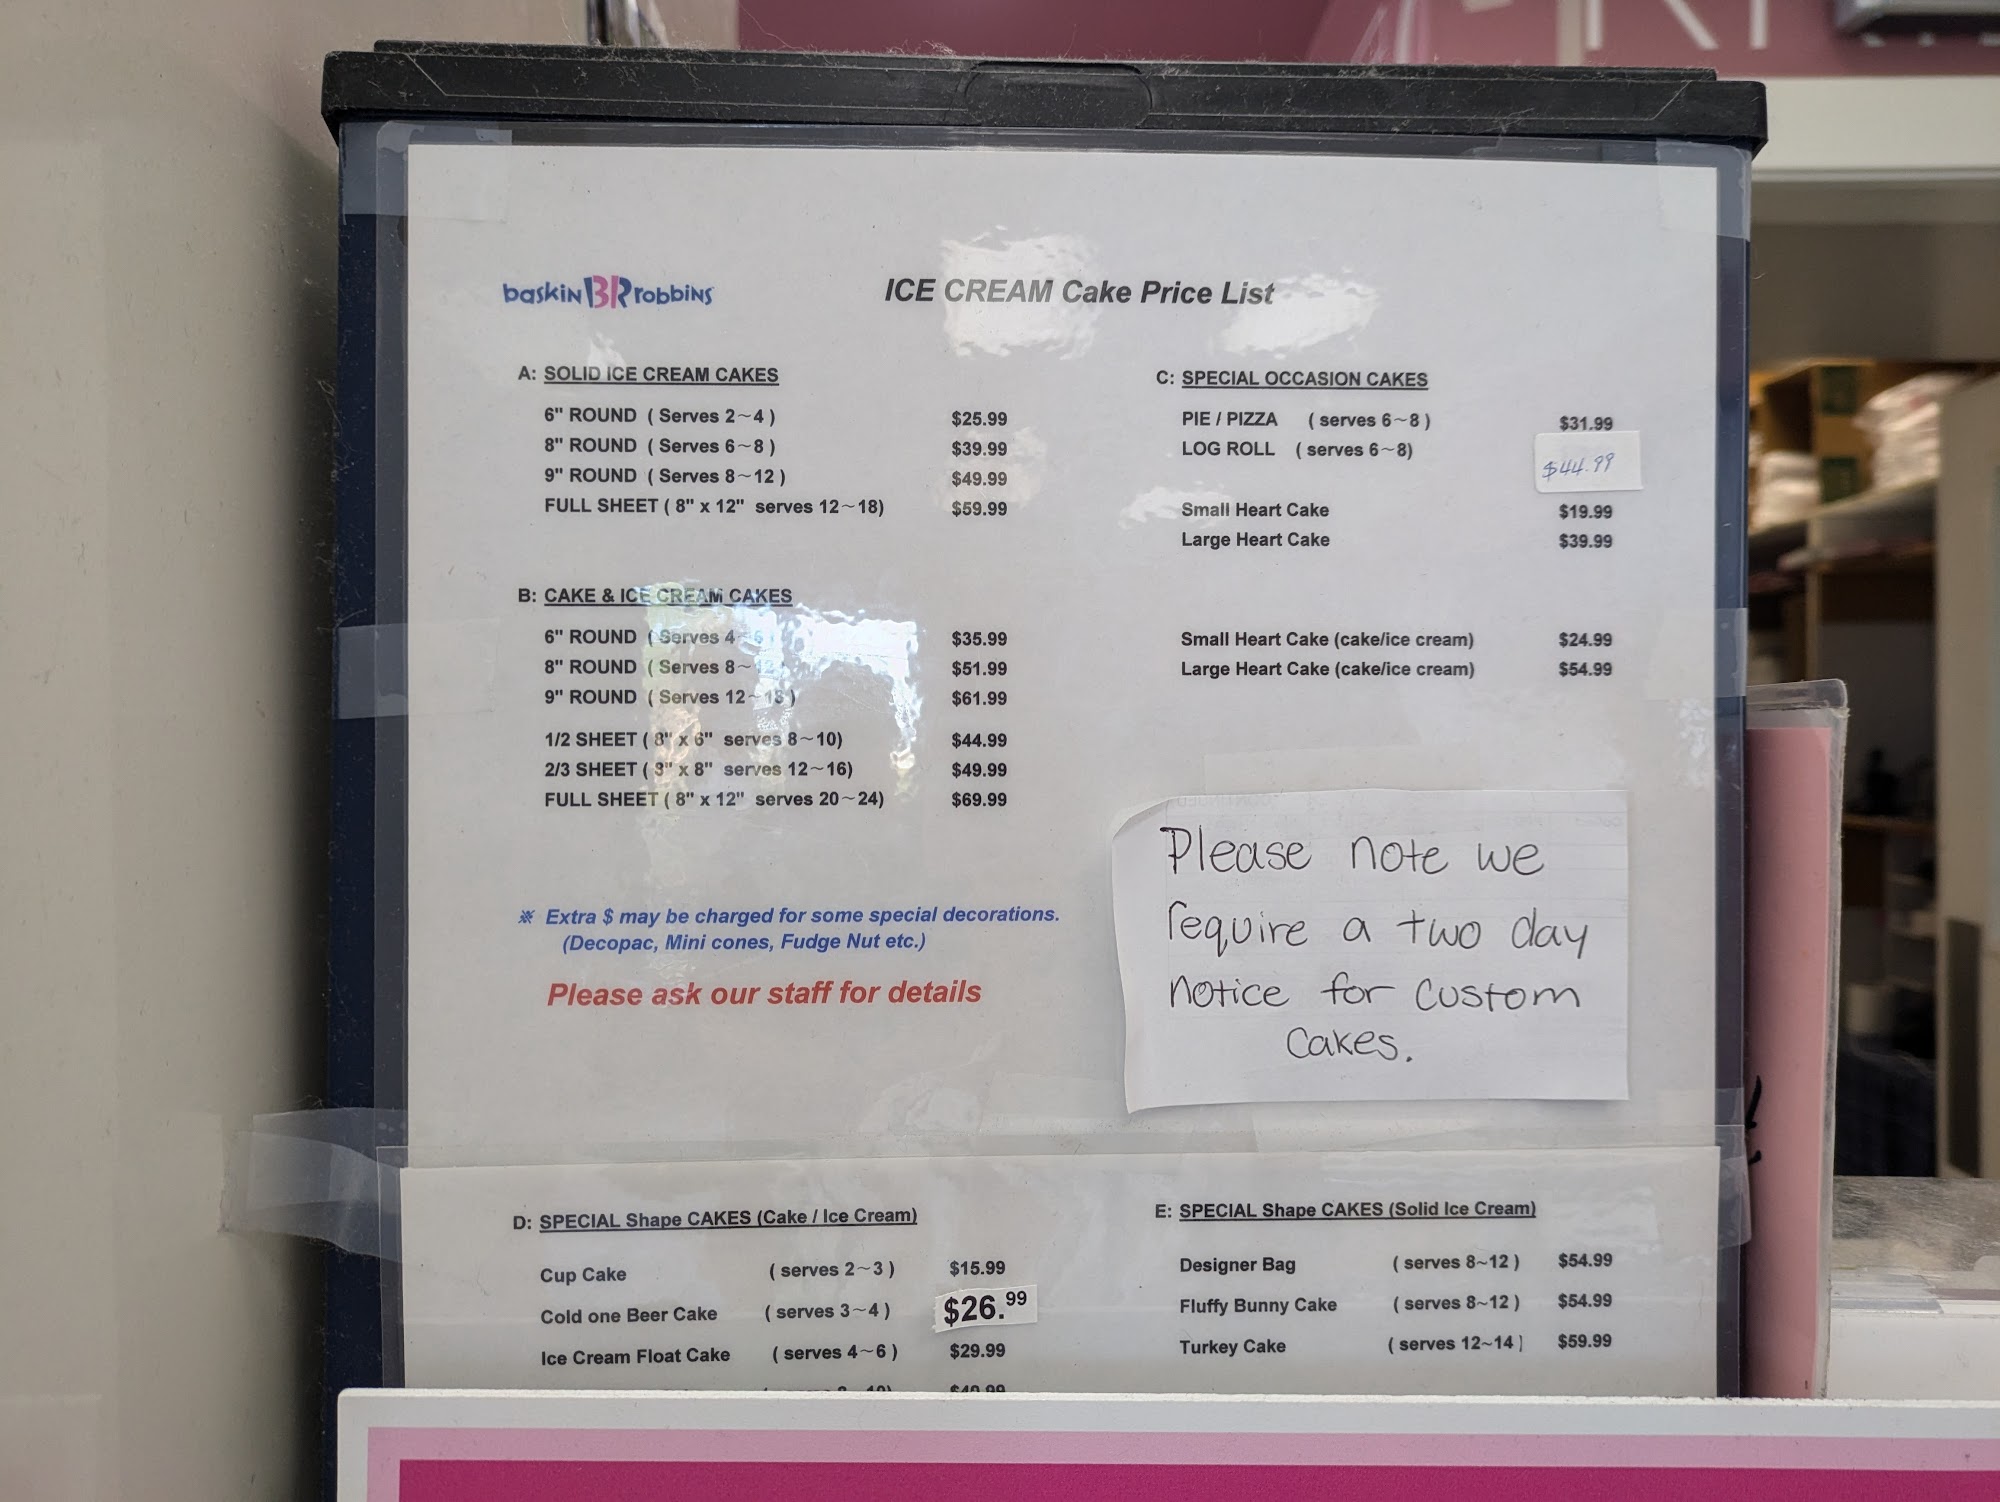 baskin BR robbins
ICE CREAM Cake Price List
A: SOLID ICE CREAM CAKES
6" ROUND ( Serves 2~4 ) $25.99
8" ROUND ( Serves 6~8 ) $39.99
9" ROUND ( Serves 8~12 ) $49.99
FULL SHEET ( 8" x 12" serves 12~18) $59.99
B: CAKE & ICE CREAM CAKES
6" ROUND ( Serves 4~6 ) $35.99
8" ROUND ( Serves 8~12 ) $51.99
9" ROUND ( Serves 12~18 ) $61.99
1/2 SHEET ( 8" x 6" serves 8~10) $44.99
2/3 SHEET ( x 8" serves 12~16) $49.99
FULL SHEET ( 8" x 12" serves 20~24) $69.99
※ Extra $ may be charged for some special decorations.
(Decopac, Mini cones, Fudge Nut etc.)
Please ask our staff for details
C: SPECIAL OCCASION CAKES
PIE / PIZZA ( serves 6~8 ) $31.99
LOG ROLL ( serves 6~8) $44.99
Small Heart Cake $19.99
Large Heart Cake $39.99
Small Heart Cake (cake/ice cream) $24.99
Large Heart Cake (cake/ice cream) $54.99
Please note we
require a two day
notice for custom
cakes.
D: SPECIAL Shape CAKES (Cake / Ice Cream)
Cup Cake ( serves 2~3 ) $15.99
Cold one Beer Cake ( serves 3~4 ) $26.99
Ice Cream Float Cake ( serves 4~6 ) $29.99
E: SPECIAL Shape CAKES (Solid Ice Cream)
Designer Bag ( serves 8~12 ) $54.99
Fluffy Bunny Cake ( serves 8~12 ) $54.99
Turkey Cake ( serves 12~14 ) $59.99